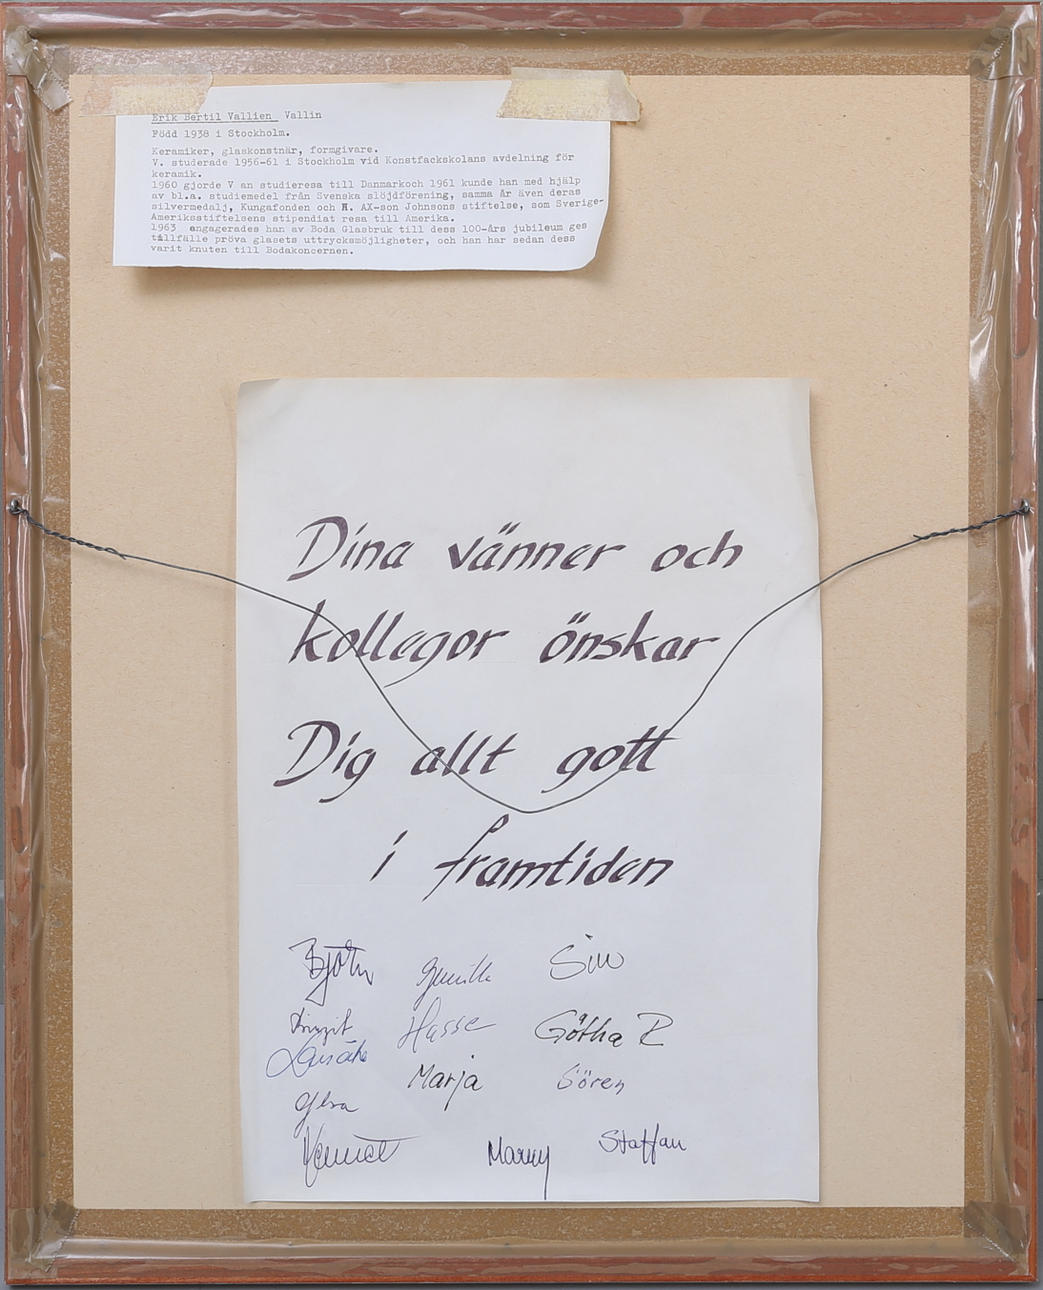 Erik Bertil Vallien  Vallin
Född 1938 i Stockholm.
Keramiker, glaskonstnär, formgivare.
V. studerade 1956-61 i Stockholm vid Konstfackskolans avdelning för
keramik.
1960 gjorde V an studieresa till Danmarkoch 1961 kunde han med hjälp
av bl.a. studiemedel från Svenska slöjdförening, samma år även deras
silvermedalj, Kungafonden och A. AX-son Johnsons stiftelse, som Sverige-
Ameriksstiftelsens stipendiat resa till Amerika.
1963  engagerades han av Boda Glasbruk till dess 100-års jubileum ges
tillfälle pröva glasets uttrycksmöjligheter, och han har sedan dess
varit knuten till Bodakoncernen.
Dina vänner och
kollegor önskar
Dig allt gott
i framtiden
Björn Gunilla Siw
Birgit Hasse Götha R
Lars-Åke Marja Sören
Kennet Marny Staffan